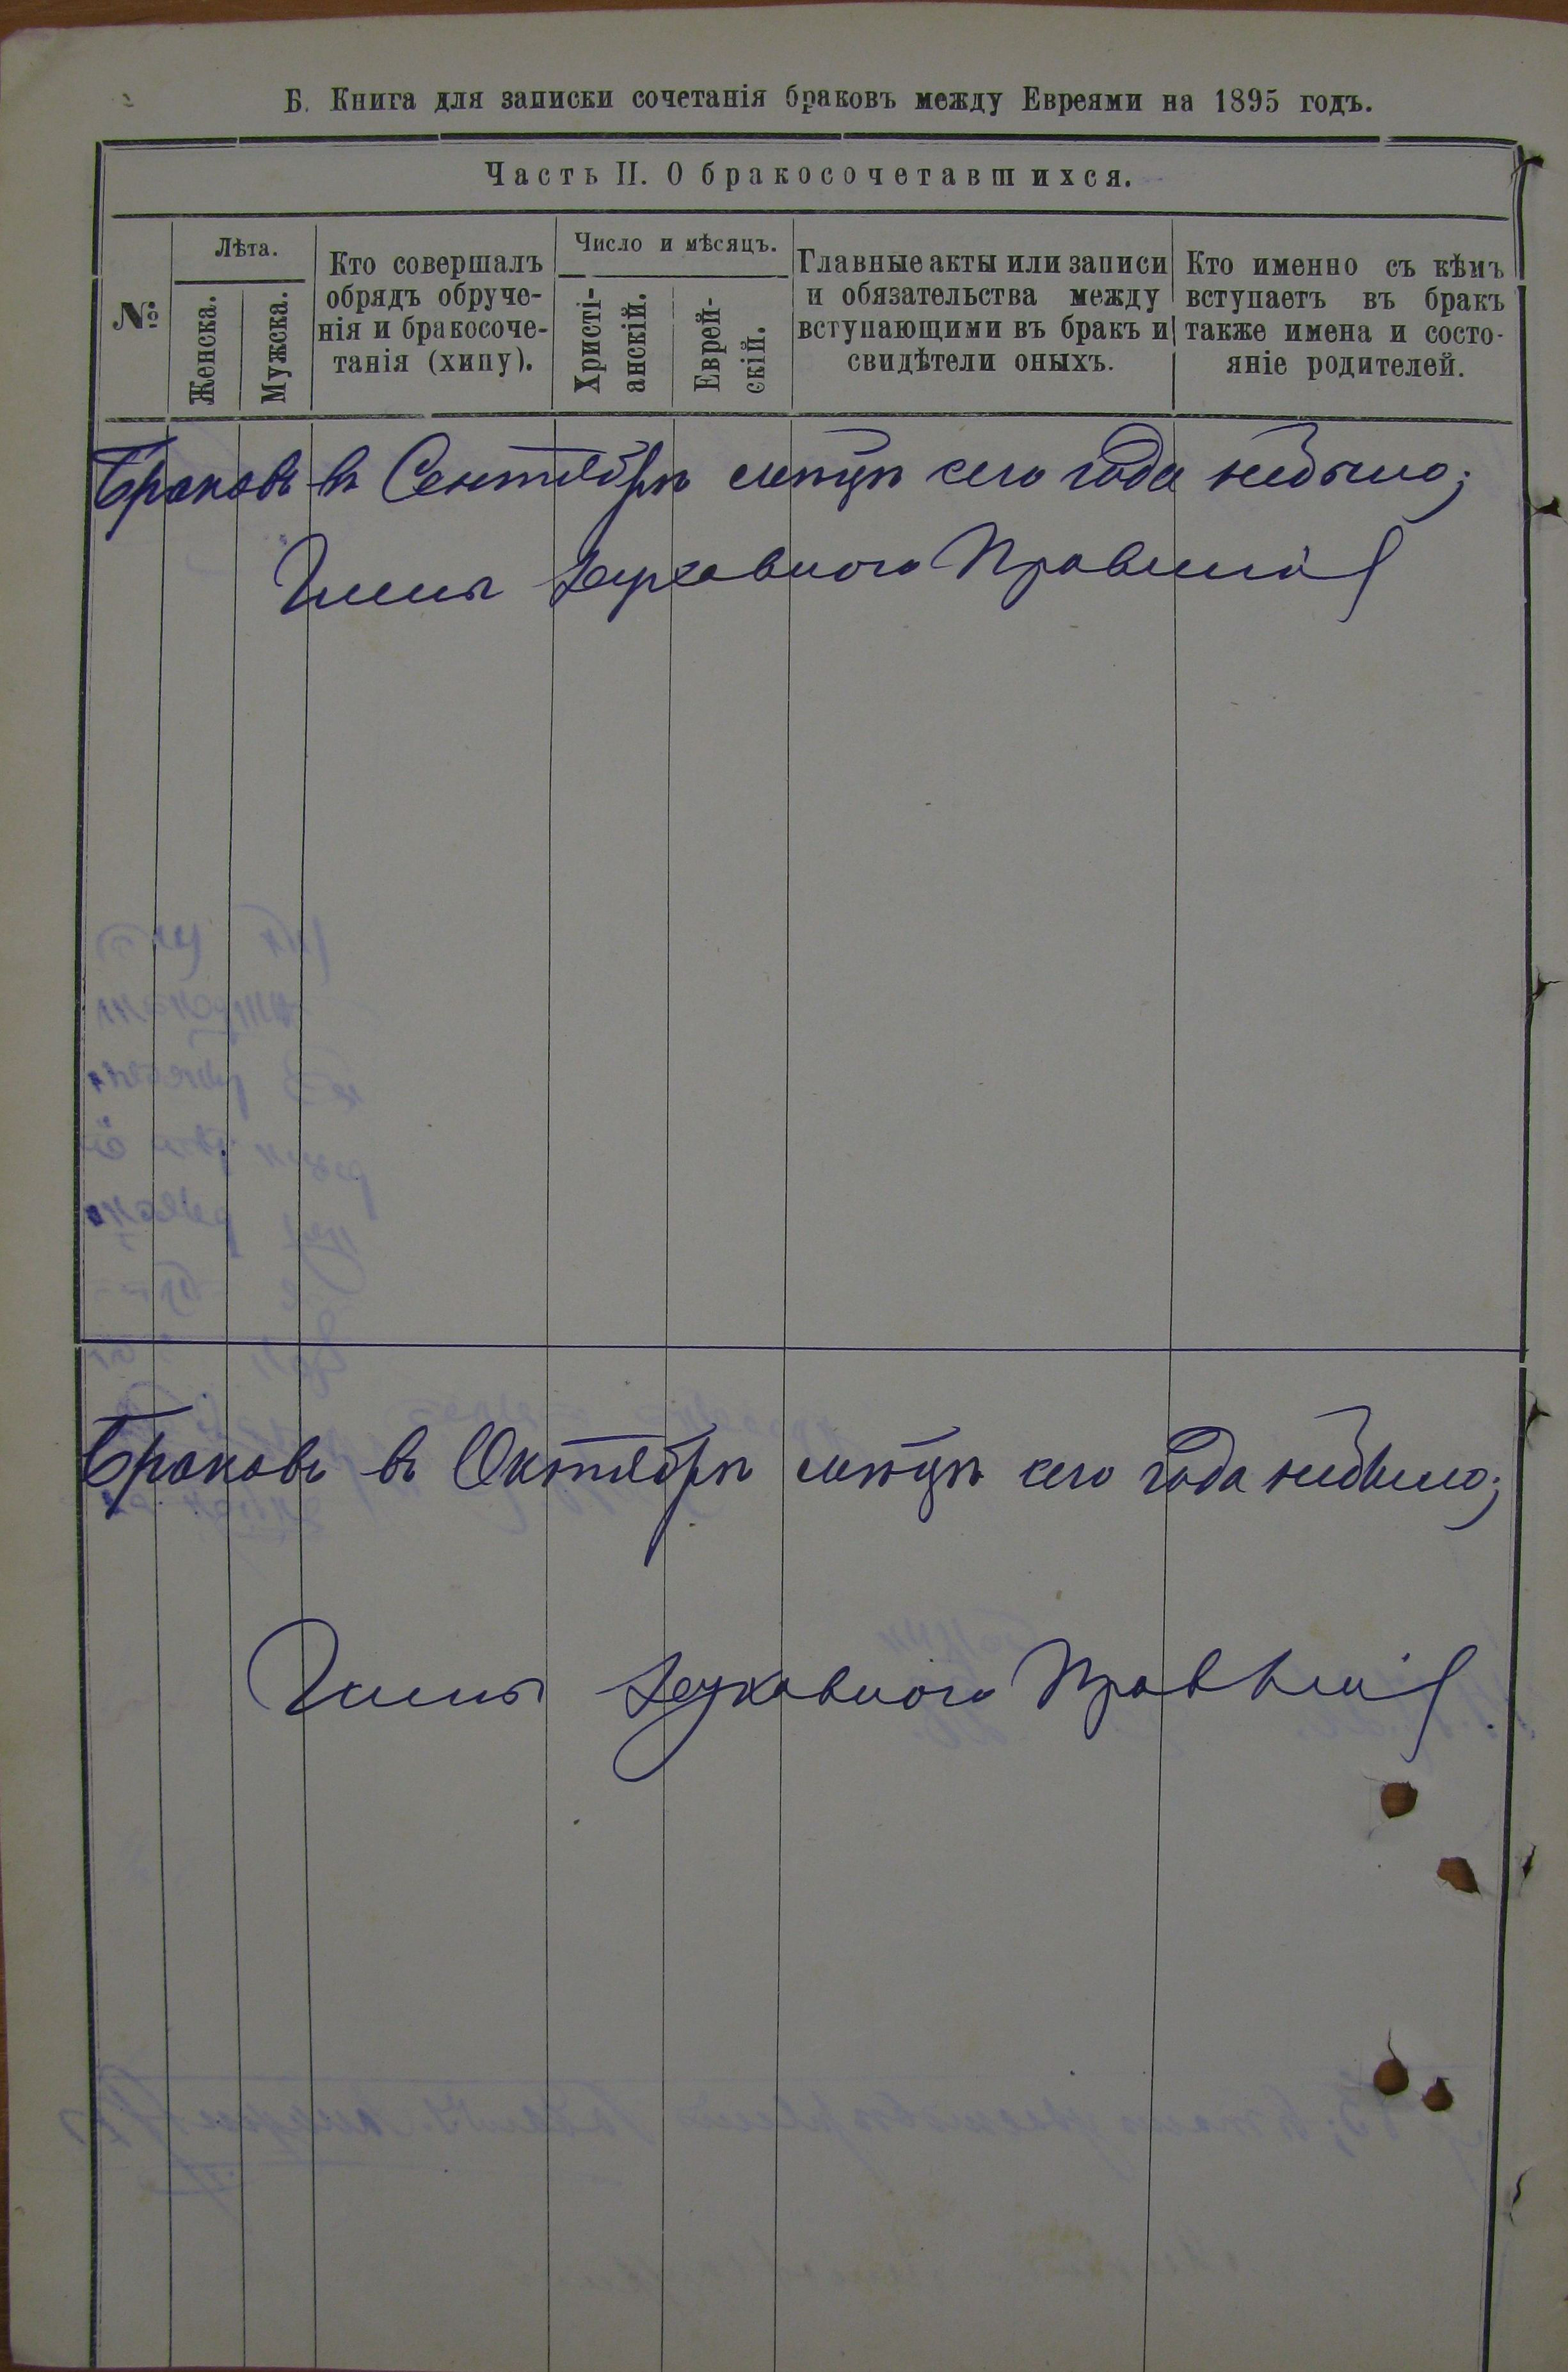 Б. Книга для записки сочетанія браковъ между Евреями на 1895 годъ.
Часть II. О бракосочетавшихся.
№
Лѣта.
Женска.
Мужска.
Кто совершалъ
обрядъ обруче-
нія и бракосоче-
танія (хипу).
Число и мѣсяцъ.
Христі-
анскій.
Еврей-
скій.
Главные акты или записи
и обязательства между
вступающими въ бракъ и
свидѣтели оныхъ.
Кто именно съ кѣмъ
вступаетъ въ бракъ
также имена и состо-
яніе родителей.
Браковъ въ Сентябрѣ мѣсяцѣ сего года небыло;
Члены Духовного Правленія
Браковъ въ Октябрѣ мѣсяцѣ сего года небыло;
Члены Духовного Правленія